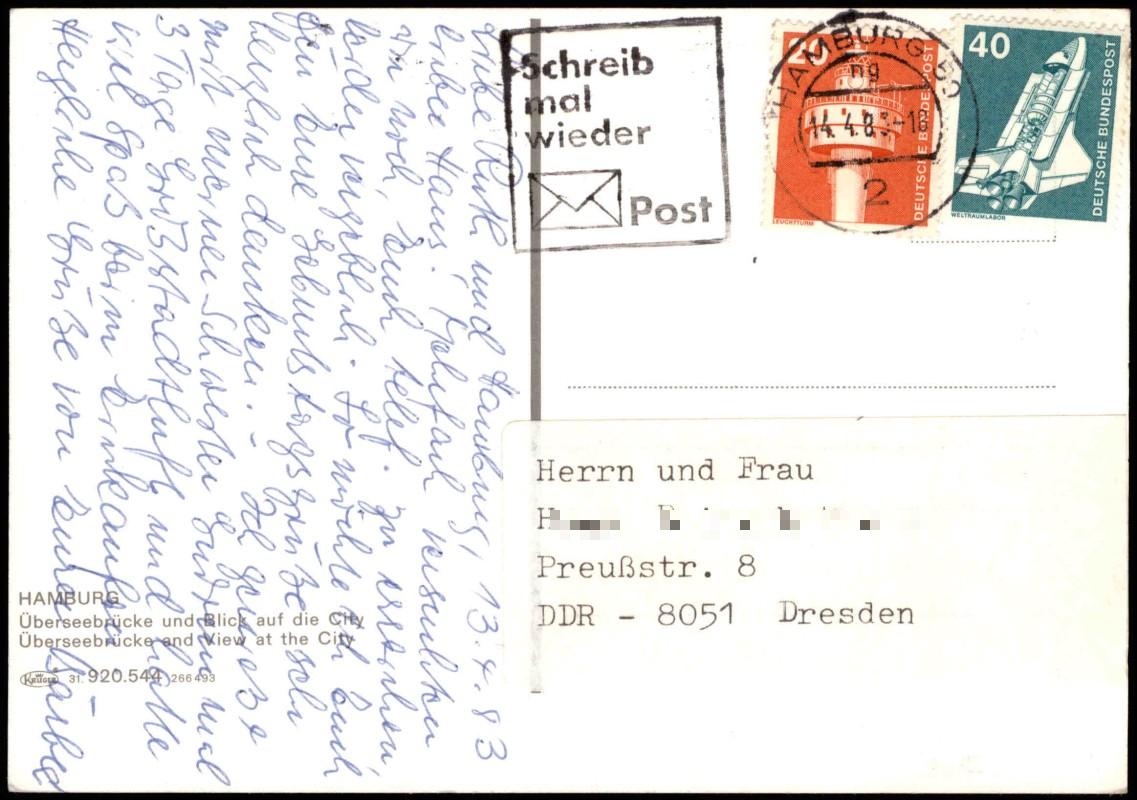 Liebe Ruth und Hamburg, 13.4.83
lieber Hans. Mehrfach versuchten
wir noch, Euch telef. zu erreichen
leider vergeblich. So möchte ich Euch
für Eure Geburtstagsgrüße sehr
herzlich danken. Ich genieße
mit meiner Schwester mal
3 Tage Großstadtluft und habe
viel Spaß beim Einkaufen.
Herzliche Grüße von Eurer Bärbel
HAMBURG
Überseebrücke und Blick auf die City
Überseebrücke and View at the City
KRÜGER 31. 920.544 266 493
Schreib
mal
wieder
Post
20
DEUTSCHE BUNDESPOST
LEUCHTTURM
HAMBURG
ng
14.4.8 -18
2
40
DEUTSCHE BUNDESPOST
WELTRAUMLABOR
Herrn und Frau
Preußstr. 8
DDR - 8051 Dresden